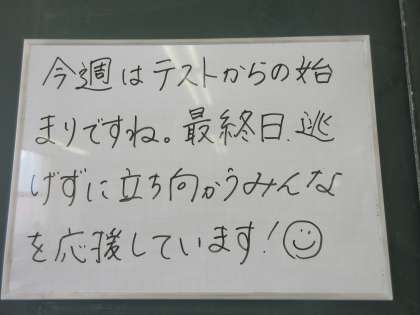 今週はテストからの始
まりですね。最終日、逃
げずに立ち向かうみんな
を応援しています!